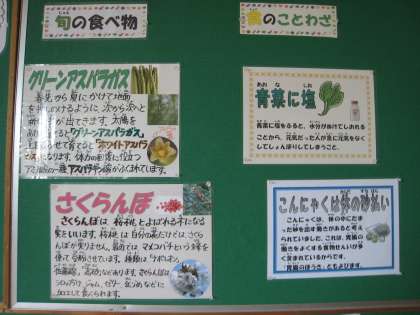 旬の食べ物
食のことわざ
グリーンアスパラガス
春先から夏にかけて地面
新芽が出てきます。太陽を
「グリーンアスパラガス」
「ホワイトアスパラ
さくらんぼ
さくらんぼは桜桃とよばれる木になる
実をいいます。桜桃は自分の花だけでは、さくら
んぼが実りません。最近では、マメコバチという蜂を
使って受粉させています。種類は「ナポレオン」
佐藤錦、高砂などあります。さくらんぼは
シロップづけ、ジャム、ゼリー
加工して食べられます。
青菜に塩
青菜に塩をふると、水分がぬけてしおれる
ことから、元気だった人が急に元気をなくして
しょんぼりしてしまうこと。
こんにゃくは体の砂払い
こんにゃくは、体の中にたま
った砂を出す働きがあると考え
られていました。これは、胃腸の
働きをよくする食物せんいが多
く含まれているからです。
「胃腸のほうき」ともよびます。